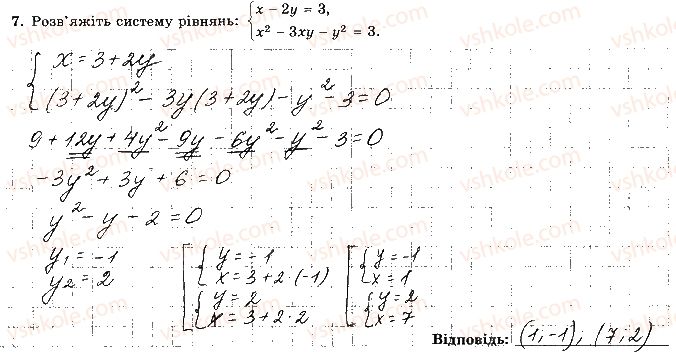 7. Розв'яжіть систему рівнянь: { x − 2y = 3,
x² − 3xy − y² = 3.
{ x = 3 + 2y
(3 + 2y)² − 3y(3 + 2y) − y² − 3 = 0
9 + 12y + 4y² − 9y − 6y² − y² − 3 = 0
−3y² + 3y + 6 = 0
y² − y − 2 = 0
y₁ = −1
y₂ = 2
[ { y = −1
x = 3 + 2·(−1)
{ y = 2
x = 3 + 2·2
[ { y = −1
x = 1
{ y = 2
x = 7
Відповідь: (1; −1), (7; 2)
vshkole.com